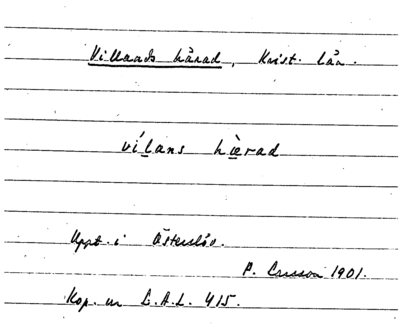 Villands härad, Krist. län.
vílans hàrad
Uppt. i Österslöv.
P. 1901.
Kop. ur L.A.L. 415.